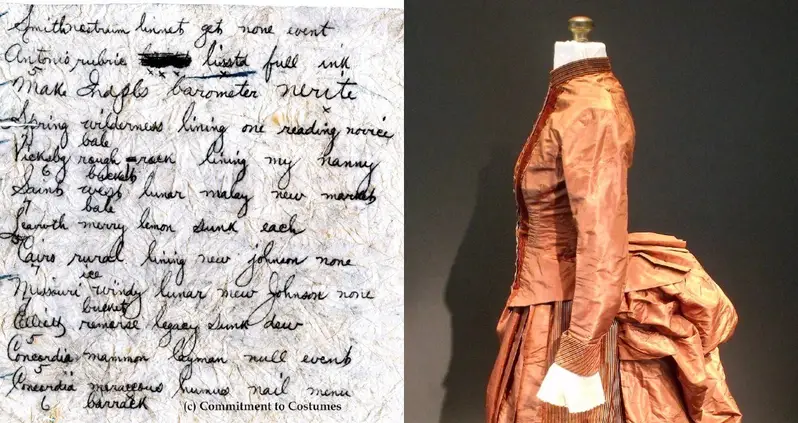 Smithnestrum linnet get none event
Antonio rubric lissta full ink
5 x x x x
Make Indpls barometer nerite
x
Spring wilderness lining one reading novice
7 bale
Vicksbg rough rack lining my nanny
6 bucket
Saint west lunar malay new market
7 bale
Learoth merry lemon sunk each
5
Cairo rural lining new johnson none
7 ice
Missouri windy lunar mew Johnson none
bucket
Elliott remorse legacy sunk dew
Concordia mammon layman null event
5
Concordia meraccous humus nail menu
6 barrack
(c) Commitment to Costumes